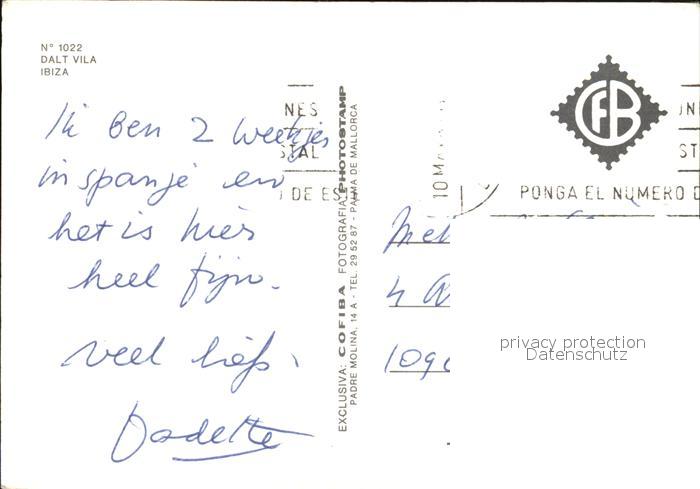 Nº 1022
DALT VILA
IBIZA
Ik ben 2 weekjes
in spanje en
het is hier
heel fijn.
veel liefs,
EXCLUSIVA: COFIBA FOTOGRAFIA PHOTOSTAMP
PADRE MOLINA, 14 A - TEL. 29 52 87 - PALMA DE MALLORCA
CFB
NES
STAL
DE ES
10 MA
ST
PONGA EL NUMERO D
4
109
privacy protection
Datenschutz